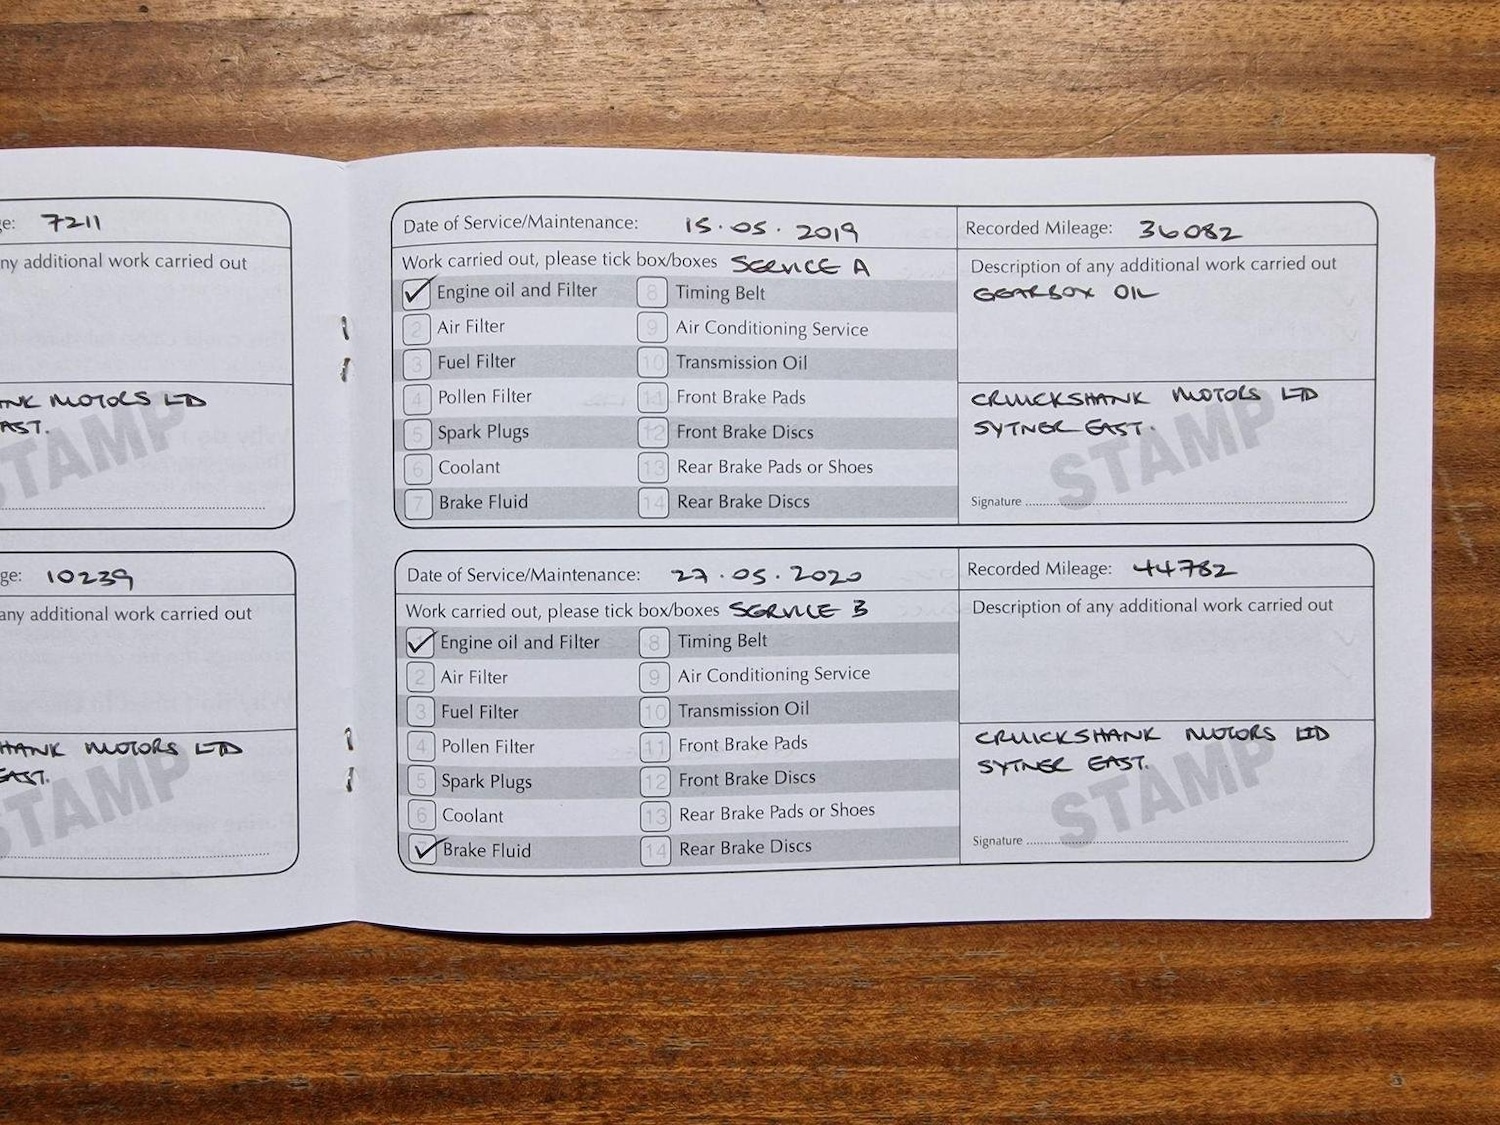 ge: 7211
ny additional work carried out
NK MOTORS LTD
AST.
STAMP
ge: 10239
any additional work carried out
HANK MOTORS LTD
EAST.
STAMP
Date of Service/Maintenance: 15.05.2019
Recorded Mileage: 36082
Work carried out, please tick box/boxes SERVICE A
Engine oil and Filter
2 Air Filter
3 Fuel Filter
4 Pollen Filter
5 Spark Plugs
6 Coolant
7 Brake Fluid
8 Timing Belt
9 Air Conditioning Service
10 Transmission Oil
11 Front Brake Pads
12 Front Brake Discs
13 Rear Brake Pads or Shoes
14 Rear Brake Discs
Description of any additional work carried out
GEARBOX OIL
CRUICKSHANK MOTORS LTD
SYTNER EAST.
STAMP
Signature
Date of Service/Maintenance: 27.05.2020
Recorded Mileage: 44782
Work carried out, please tick box/boxes SERVICE B
Engine oil and Filter
2 Air Filter
3 Fuel Filter
4 Pollen Filter
5 Spark Plugs
6 Coolant
Brake Fluid
8 Timing Belt
9 Air Conditioning Service
10 Transmission Oil
11 Front Brake Pads
12 Front Brake Discs
13 Rear Brake Pads or Shoes
14 Rear Brake Discs
Description of any additional work carried out
CRUICKSHANK MOTORS LTD
SYTNER EAST.
STAMP
Signature